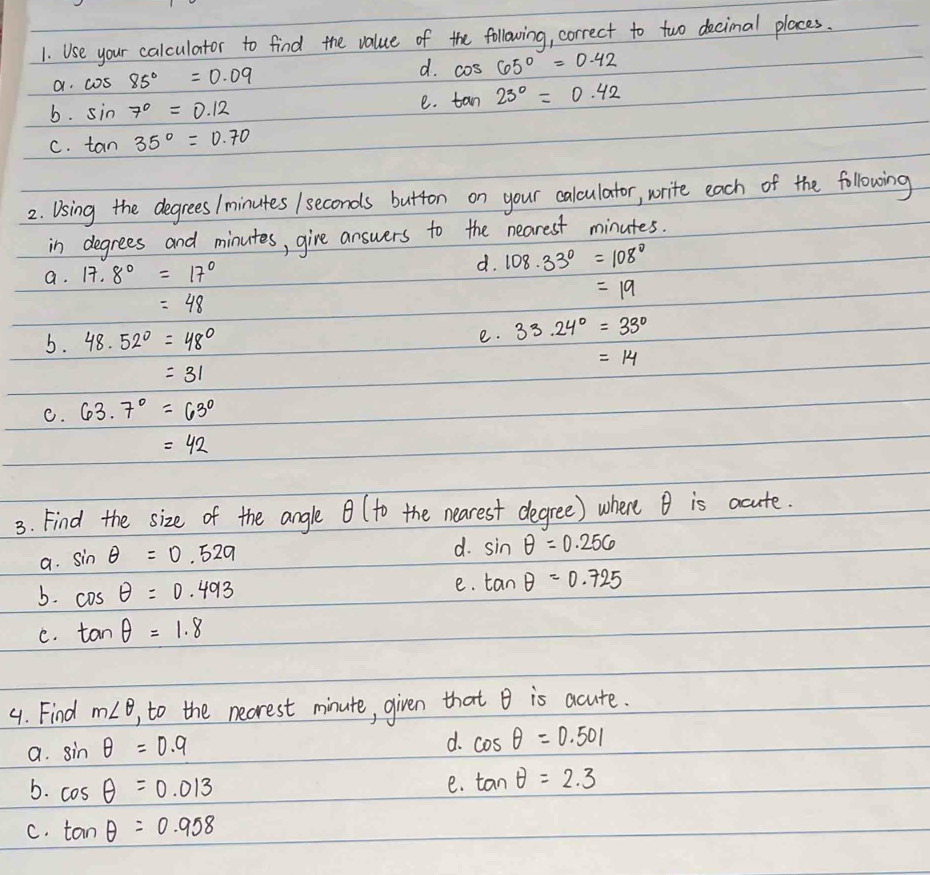 1. Use your calculator to find the value of the following, correct to two decimal places.
a. cos 85° = 0.09
d. cos 65° = 0.42
b. sin 7° = 0.12
e. tan 23° = 0.42
c. tan 35° = 0.70
2. Using the degrees/minutes/seconds button on your calculator, write each of the following
in degrees and minutes, give answers to the nearest minutes.
a. 17.8° = 17°
= 48
d. 108.33° = 108°
= 19
b. 48.52° = 48°
= 31
e. 33.24° = 33°
= 14
c. 63.7° = 63°
= 42
3. Find the size of the angle θ (to the nearest degree) where θ is acute.
a. sin θ = 0.529
d. sin θ = 0.256
b. cos θ = 0.493
e. tan θ = 0.725
c. tan θ = 1.8
4. Find m∠θ, to the nearest minute, given that θ is acute.
a. sin θ = 0.9
d. cos θ = 0.501
b. cos θ = 0.013
e. tan θ = 2.3
c. tan θ = 0.958